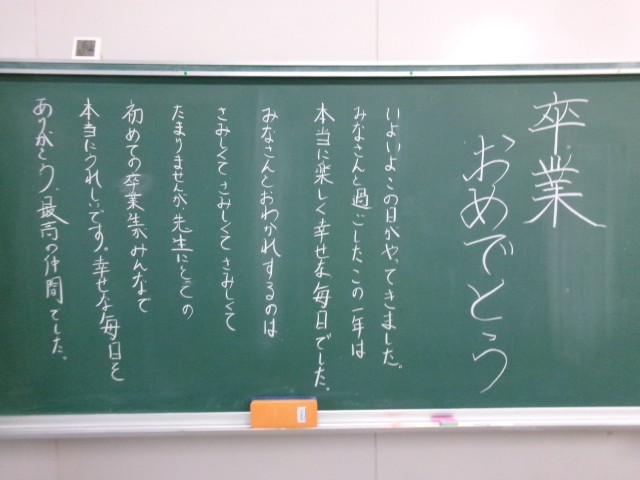 卒業
おめでとう
いよいよこの日がやってきました。
みなさんと過ごしたこの一年は
本当に楽しく幸せな毎日でした。
みなさんとおわかれするのは
さみしくてさみしくてさみしくて
たまりませんが先生にとっての
初めての卒業生がみんなで
本当にうれしいです。幸せな毎日を
ありがとう、最高の仲間でした。